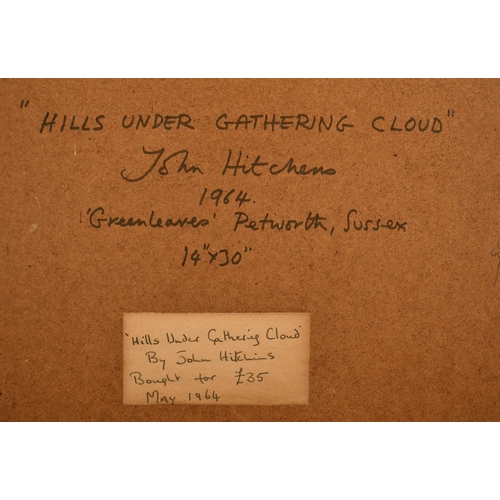 "HILLS UNDER GATHERING CLOUD"
John Hitchens
1964.
'Greenleaves' Petworth, Sussex
14"x30"
'Hills Under Gathering Cloud'
By John Hitchins
Bought for £35
May 1964